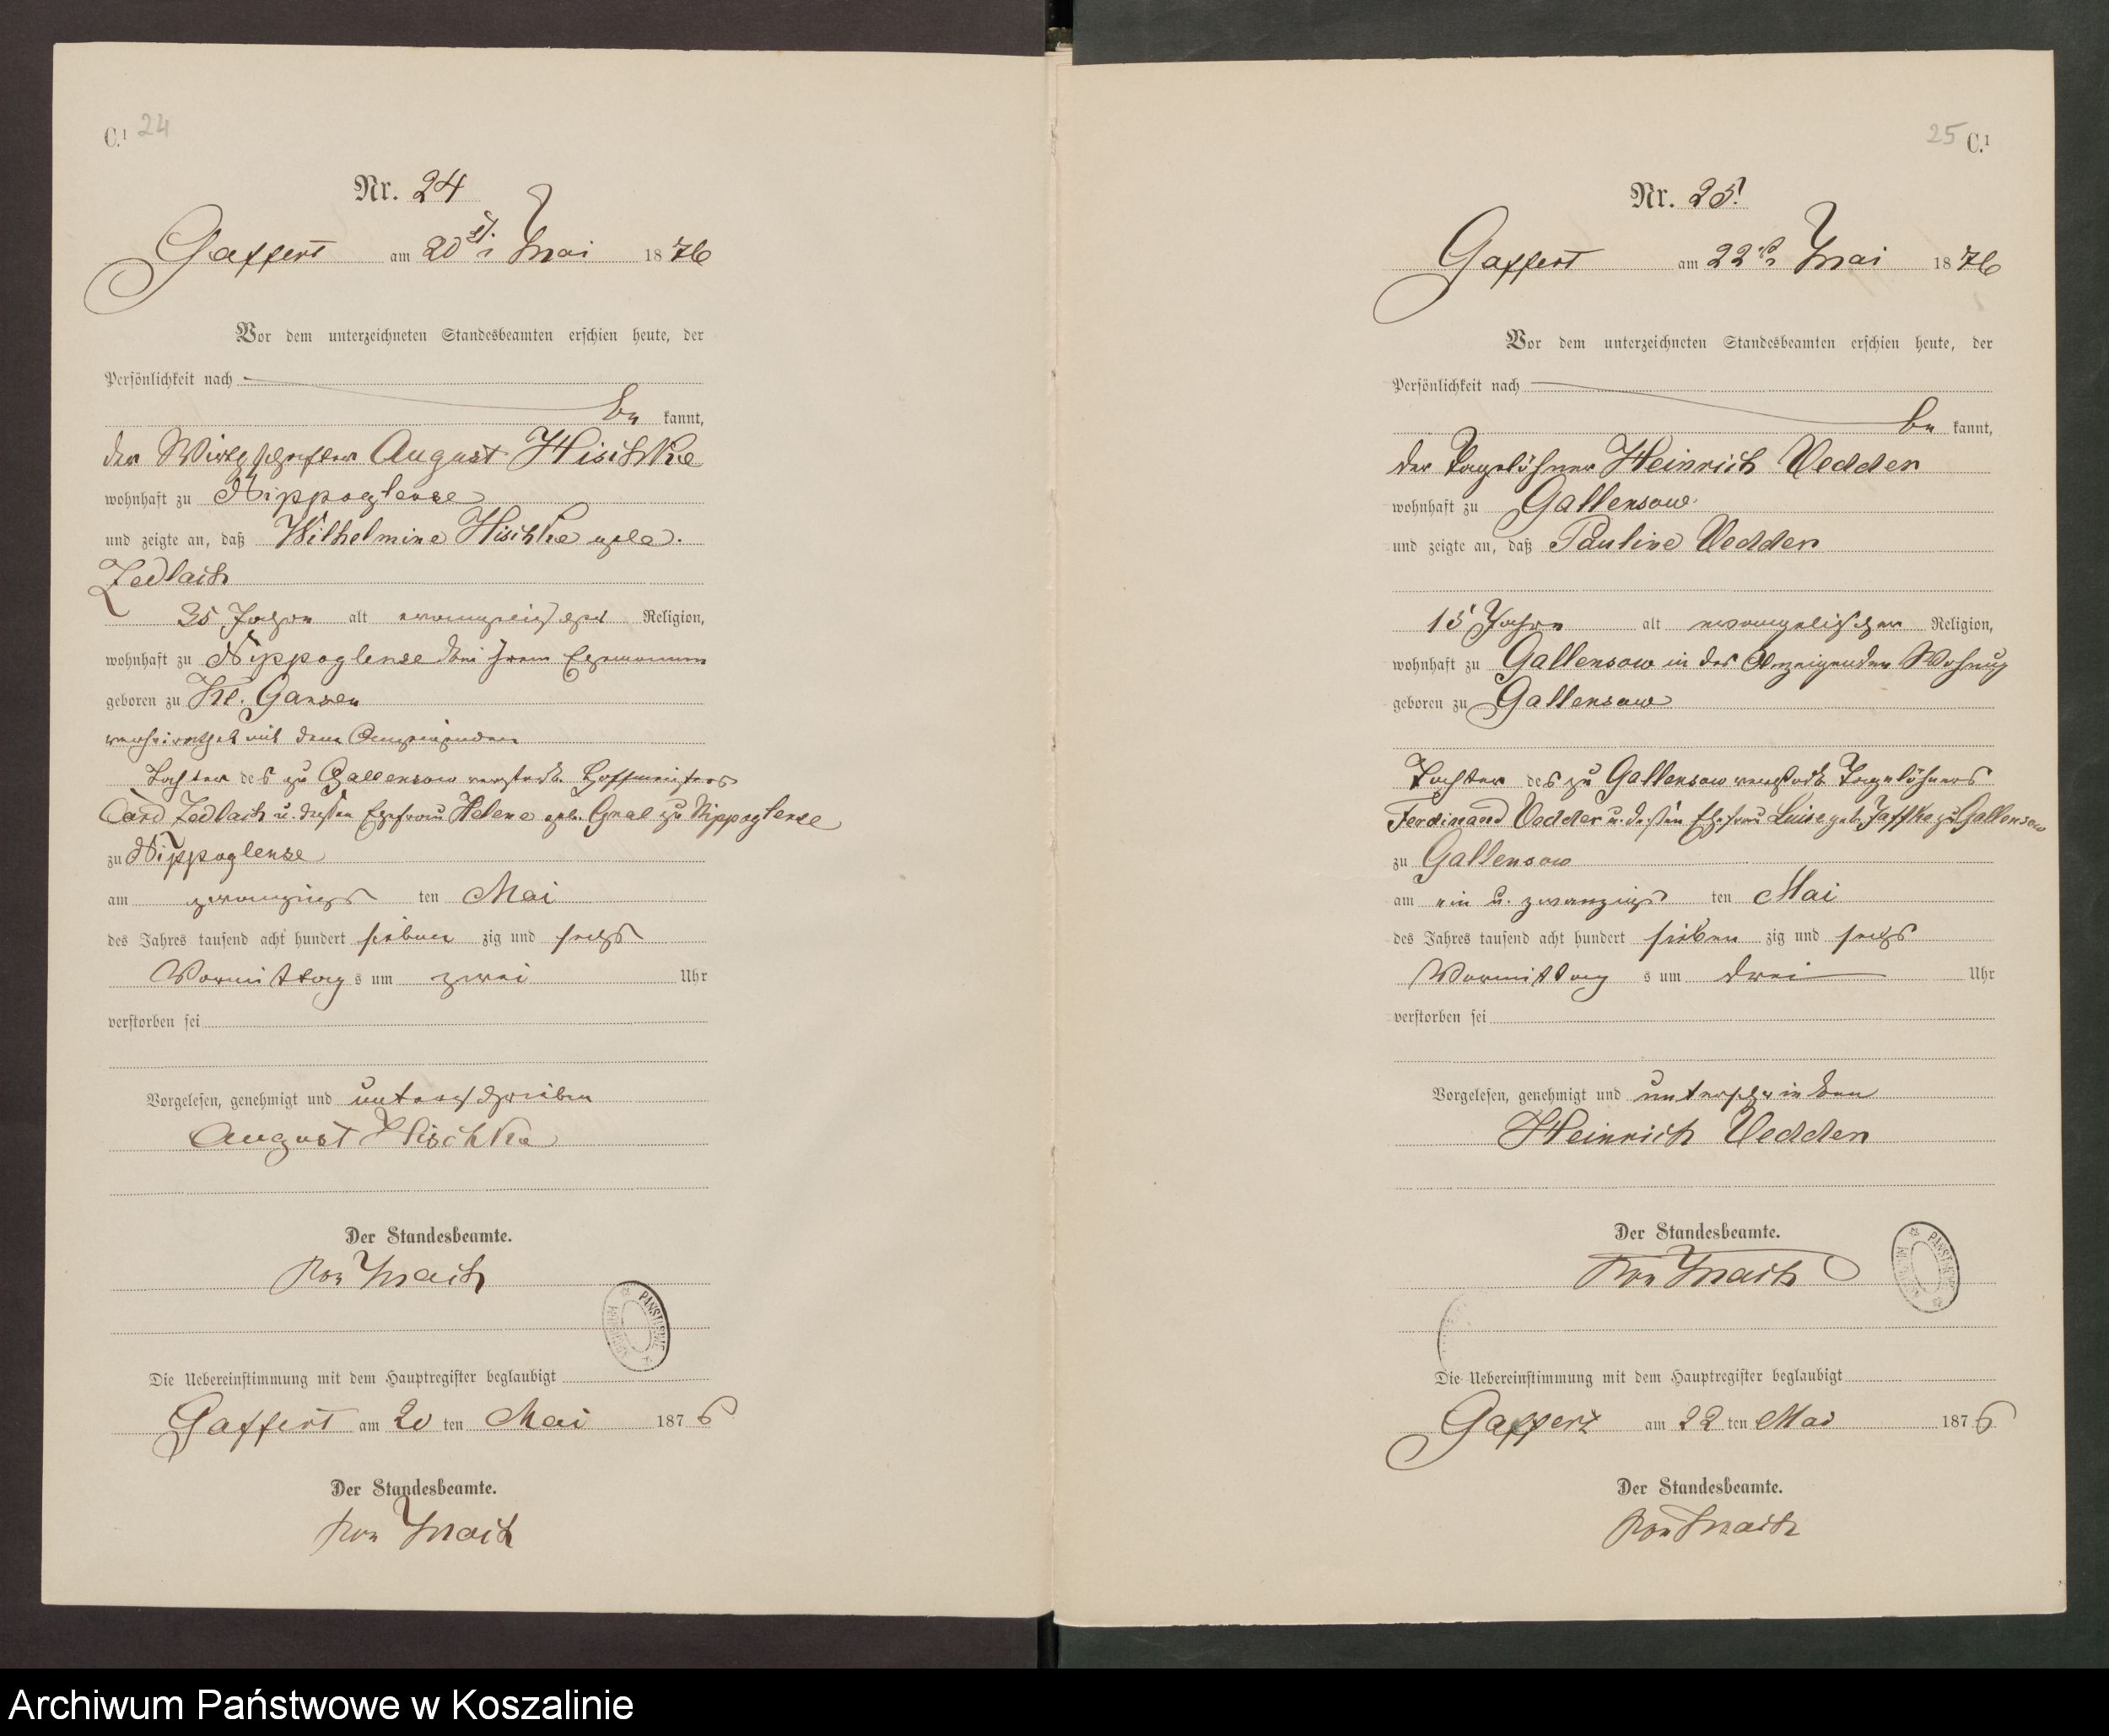 C.1 24
Nr. 24
Gaffert am 20st. Mai 1876
Vor dem unterzeichneten Standesbeamten erschien heute, der
Persönlichkeit nach
be kannt,
der August Hischke
wohnhaft zu Nippoglense
und zeigte an, daß Wilhelmine Hischke geb.
Zedlach
35 Jahre alt evangelischer Religion,
wohnhaft zu Nippoglense bei ihrem Ehemanne
geboren zu Kl. Gansen
verheirathet mit dem Anzeigenden
Tochter des zu Gallensow verstorb. Hoffmeisters
Carl Zedlach u. dessen Ehefrau Helene geb. zu Nippoglense
zu Nippoglense
am zwanzigs ten Mai
des Jahres tausend acht hundert sieben zig und sechs
Vormittag s um zwei Uhr
verstorben sei
Vorgelesen, genehmigt und unterschrieben
August Hischke
Der Standesbeamte.
Die Uebereinstimmung mit dem Hauptregister beglaubigt
Gaffert am 20 ten Mai 1876
Der Standesbeamte.
25 C.1
Nr. 25.
Gaffert am 22 Mai 1876
Vor dem unterzeichneten Standesbeamten erschien heute, der
Persönlichkeit nach
be kannt,
der Tagelöhner Heinrich Vedder
wohnhaft zu Gallensow
und zeigte an, daß Pauline Vedder
15 Jahre alt evangelischer Religion,
wohnhaft zu Gallensow in des Anzeigenden Wohnung
geboren zu Gallensow
Tochter des zu Gallensow verstorb. Tagelöhners
Ferdinand Vedder u. dessen Ehefrau Luise geb. Jaffke zu Gallensow
zu Gallensow
am ein u. zwanzigs ten Mai
des Jahres tausend acht hundert sieben zig und sechs
Vormittag s um drei Uhr
verstorben sei
Vorgelesen, genehmigt und unterschrieben
Heinrich Vedder
Der Standesbeamte.
Die Uebereinstimmung mit dem Hauptregister beglaubigt
Gaffert am 22 ten Mai 1876
Der Standesbeamte.
Archiwum Państwowe w Koszalinie